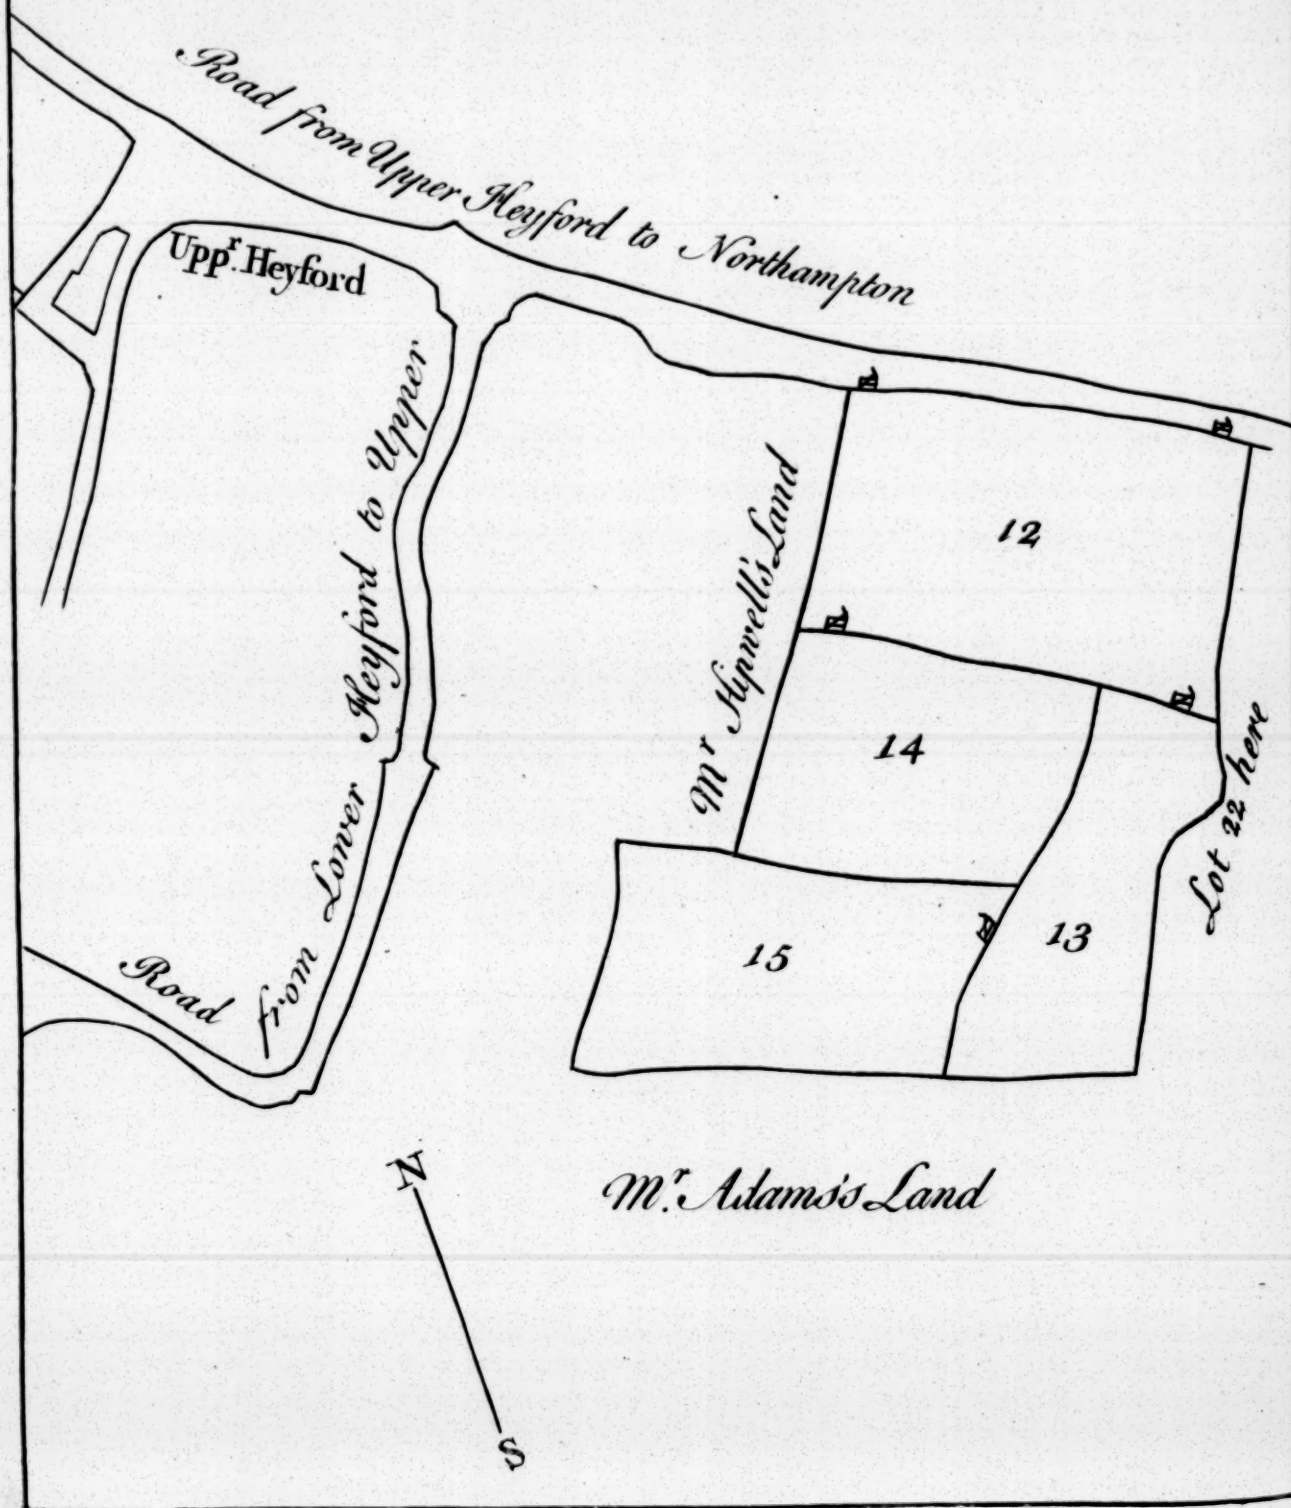 Road from Upper Heyford to Northampton
Uppr. Heyford
Road from Lower Heyford to Upper
Mr Hipwell's Land
12
14
13
15
Lot 22 here
N
S
Mr. Adams's Land